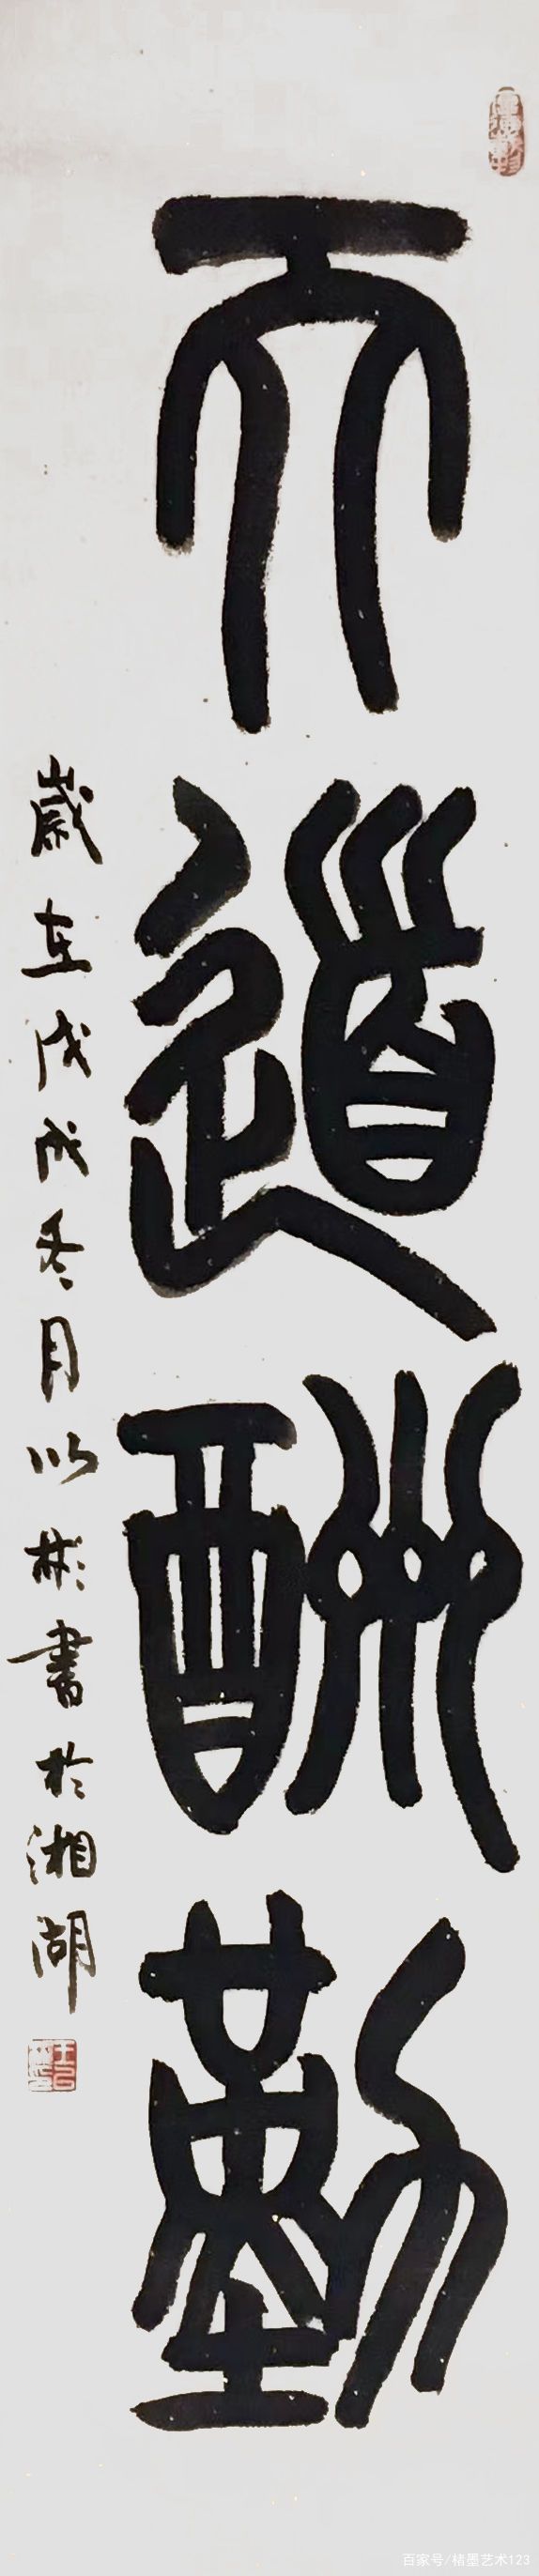 天道酬勤
歲在戊戌冬月以彬書於湘湖
百家号/楮墨艺术123